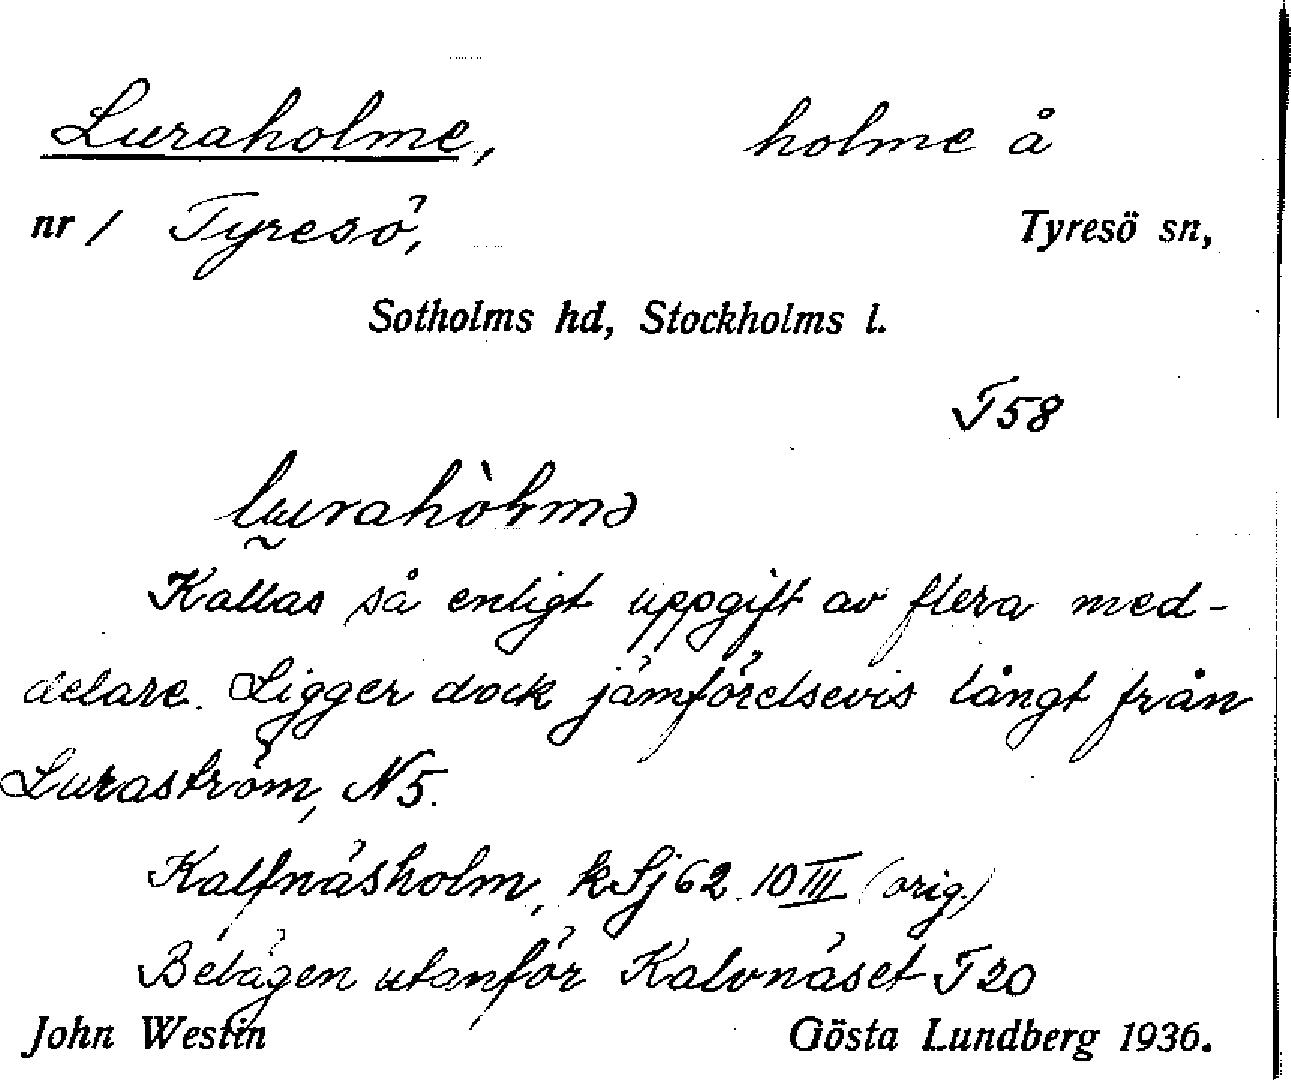 Luraholme, holme å
nr 1 Tyresö, Tyresö sn,
Sotholms hd, Stockholms l.
T 58
Kallas så enligt uppgift av flera med-
delare. Ligger dock jämförelsevis långt från
Luraström, N 5.
Kalfnäsholm, k Sj 62 10 III (orig.)
Belägen utanför Kalvnäset T 20
John Westin Gösta Lundberg 1936.